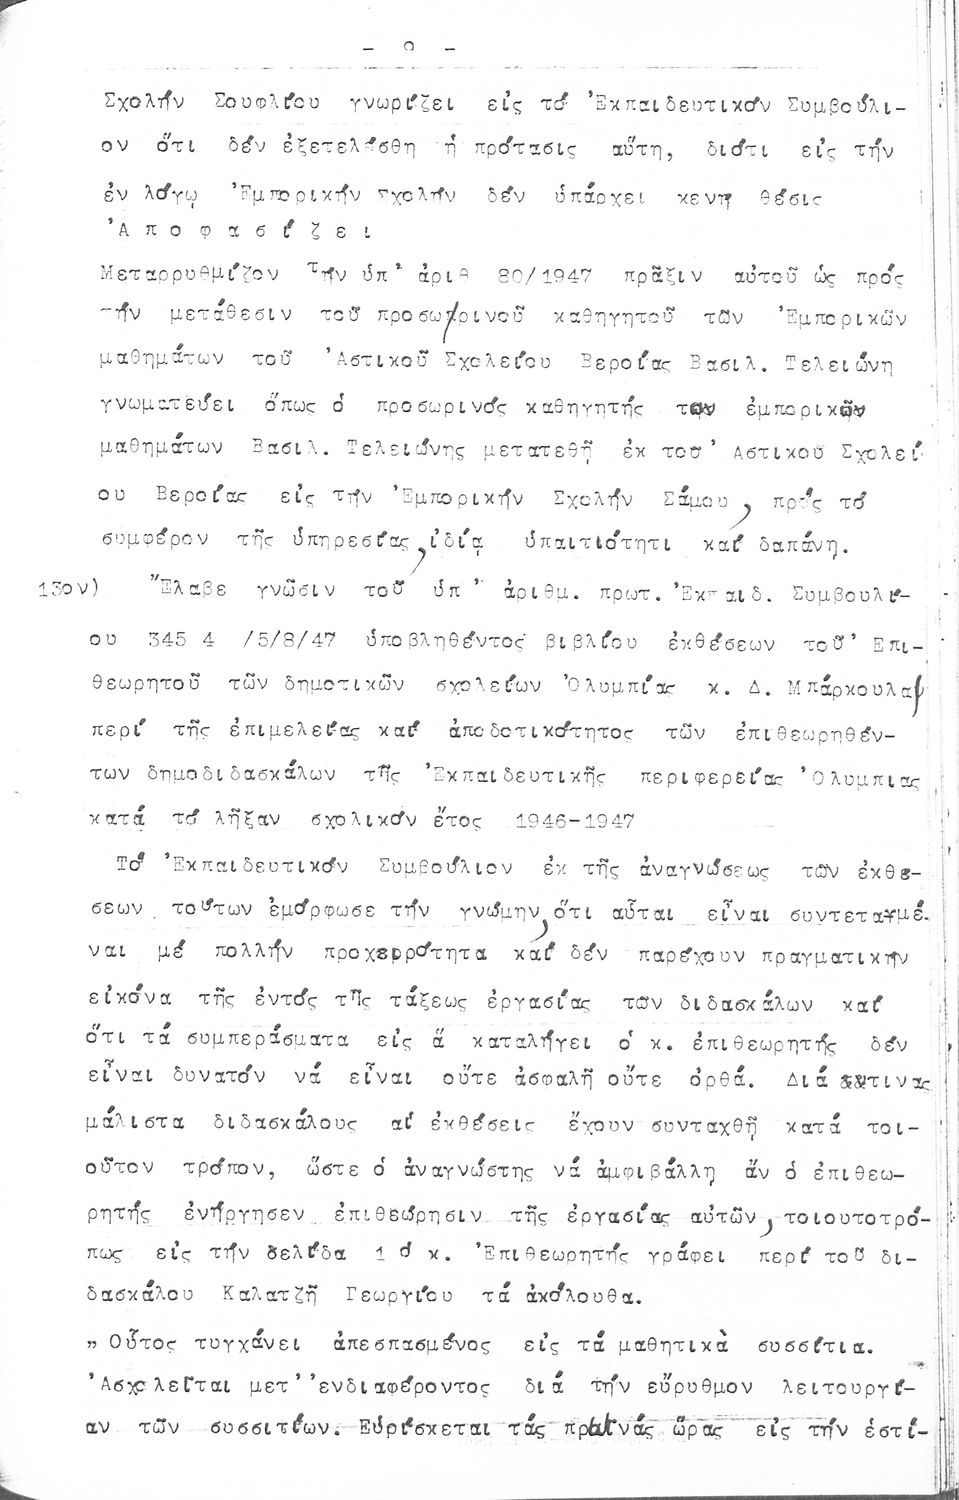 - 9 -
Σχολήν Σουφλίου γνωρίζει εἰς τό Ἐκπαιδευτικόν Συμβούλι-
ον ὅτι δέν ἐξετελέσθη ἡ πρότασις αὕτη, διότι εἰς τήν
ἐν λόγῳ Ἐμπορικήν σχολήν δέν ὑπάρχει κενή θέσις
Ἀ π ο φ α σ ί ζ ε ι
Μεταρρυθμίζον τήν ὑπ' ἀριθ 80/1947 πρᾶξιν αὐτοῦ ὡς πρός
τήν μετάθεσιν τοῦ προσωρινοῦ καθηγητοῦ τῶν Ἐμπορικῶν
μαθημάτων τοῦ Ἀστικοῦ Σχολείου Βεροίας Βασιλ. Τελειώνη
γνωματεύει ὅπως ὁ προσωρινός καθηγητής τῶν ἐμπορικῶν
μαθημάτων Βασιλ. Τελειώνης μετατεθῇ ἐκ τοῦ Ἀστικοῦ Σχολεί
ου Βεροίας εἰς τήν Ἐμπορικήν Σχολήν Σάμου, πρός τό
συμφέρον τῆς ὑπηρεσίας, ἰδίᾳ ὑπαιτιότητι καί δαπάνῃ.
13ον) Ἔλαβε γνῶσιν τοῦ ὑπ' ἀριθμ. πρωτ. Ἐκπαιδ. Συμβουλί-
ου 345 4 /5/8/47 ὑποβληθέντος βιβλίου ἐκθέσεων τοῦ Ἐπι-
θεωρητοῦ τῶν δημοτικῶν σχολείων Ὀλυμπίας κ. Δ. Μπάρκουλα,
περί τῆς ἐπιμελείας καί ἀποδοτικότητος τῶν ἐπιθεωρηθέν-
των δημοδιδασκάλων τῆς Ἐκπαιδευτικῆς περιφερείας Ὀλυμπιας
κατά τό λῆξαν σχολικόν ἔτος 1946-1947
Τό Ἐκπαιδευτικόν Συμβούλιον ἐκ τῆς ἀναγνώσεως τῶν ἐκθε-
σεων τούτων ἐμόρφωσε τήν γνώμην, ὅτι αὗται εἶναι συντεταγμέ-
ναι μέ πολλήν προχειρότητα καί δέν παρέχουν πραγματικήν
εἰκόνα τῆς ἐντός τῆς τάξεως ἐργασίας τῶν διδασκάλων καί
ὅτι τά συμπεράσματα εἰς ἅ καταλήγει ὁ κ. ἐπιθεωρητής δέν
εἶναι δυνατόν νά εἶναι οὔτε ἀσφαλῆ οὔτε ὀρθά. Διά τινας
μάλιστα διδασκάλους αἱ ἐκθέσεις ἔχουν συνταχθῇ κατά τοι-
οῦτον τρόπον, ὥστε ὁ ἀναγνώστης νά ἀμφιβάλλῃ ἄν ὁ ἐπιθεω-
ρητής ἐνήργησεν ἐπιθεώρησιν τῆς ἐργασίας αὐτῶν, τοιουτοτρό-
πως εἰς τήν δελίδα 1 ὁ κ. Ἐπιθεωρητής γράφει περί τοῦ δι-
δασκάλου Καλατζῆ Γεωργίου τά ἀκόλουθα.
" Οὗτος τυγχάνει ἀπεσπασμένος εἰς τά μαθητικὰ συσσίτια.
Ἀσχολεῖται μετ' ἐνδιαφέροντος διά τήν εὔρυθμον λειτουργί-
αν τῶν συσσιτίων. Εὑρίσκεται τάς πρωϊνάς ὥρας εἰς τήν ἑστί-